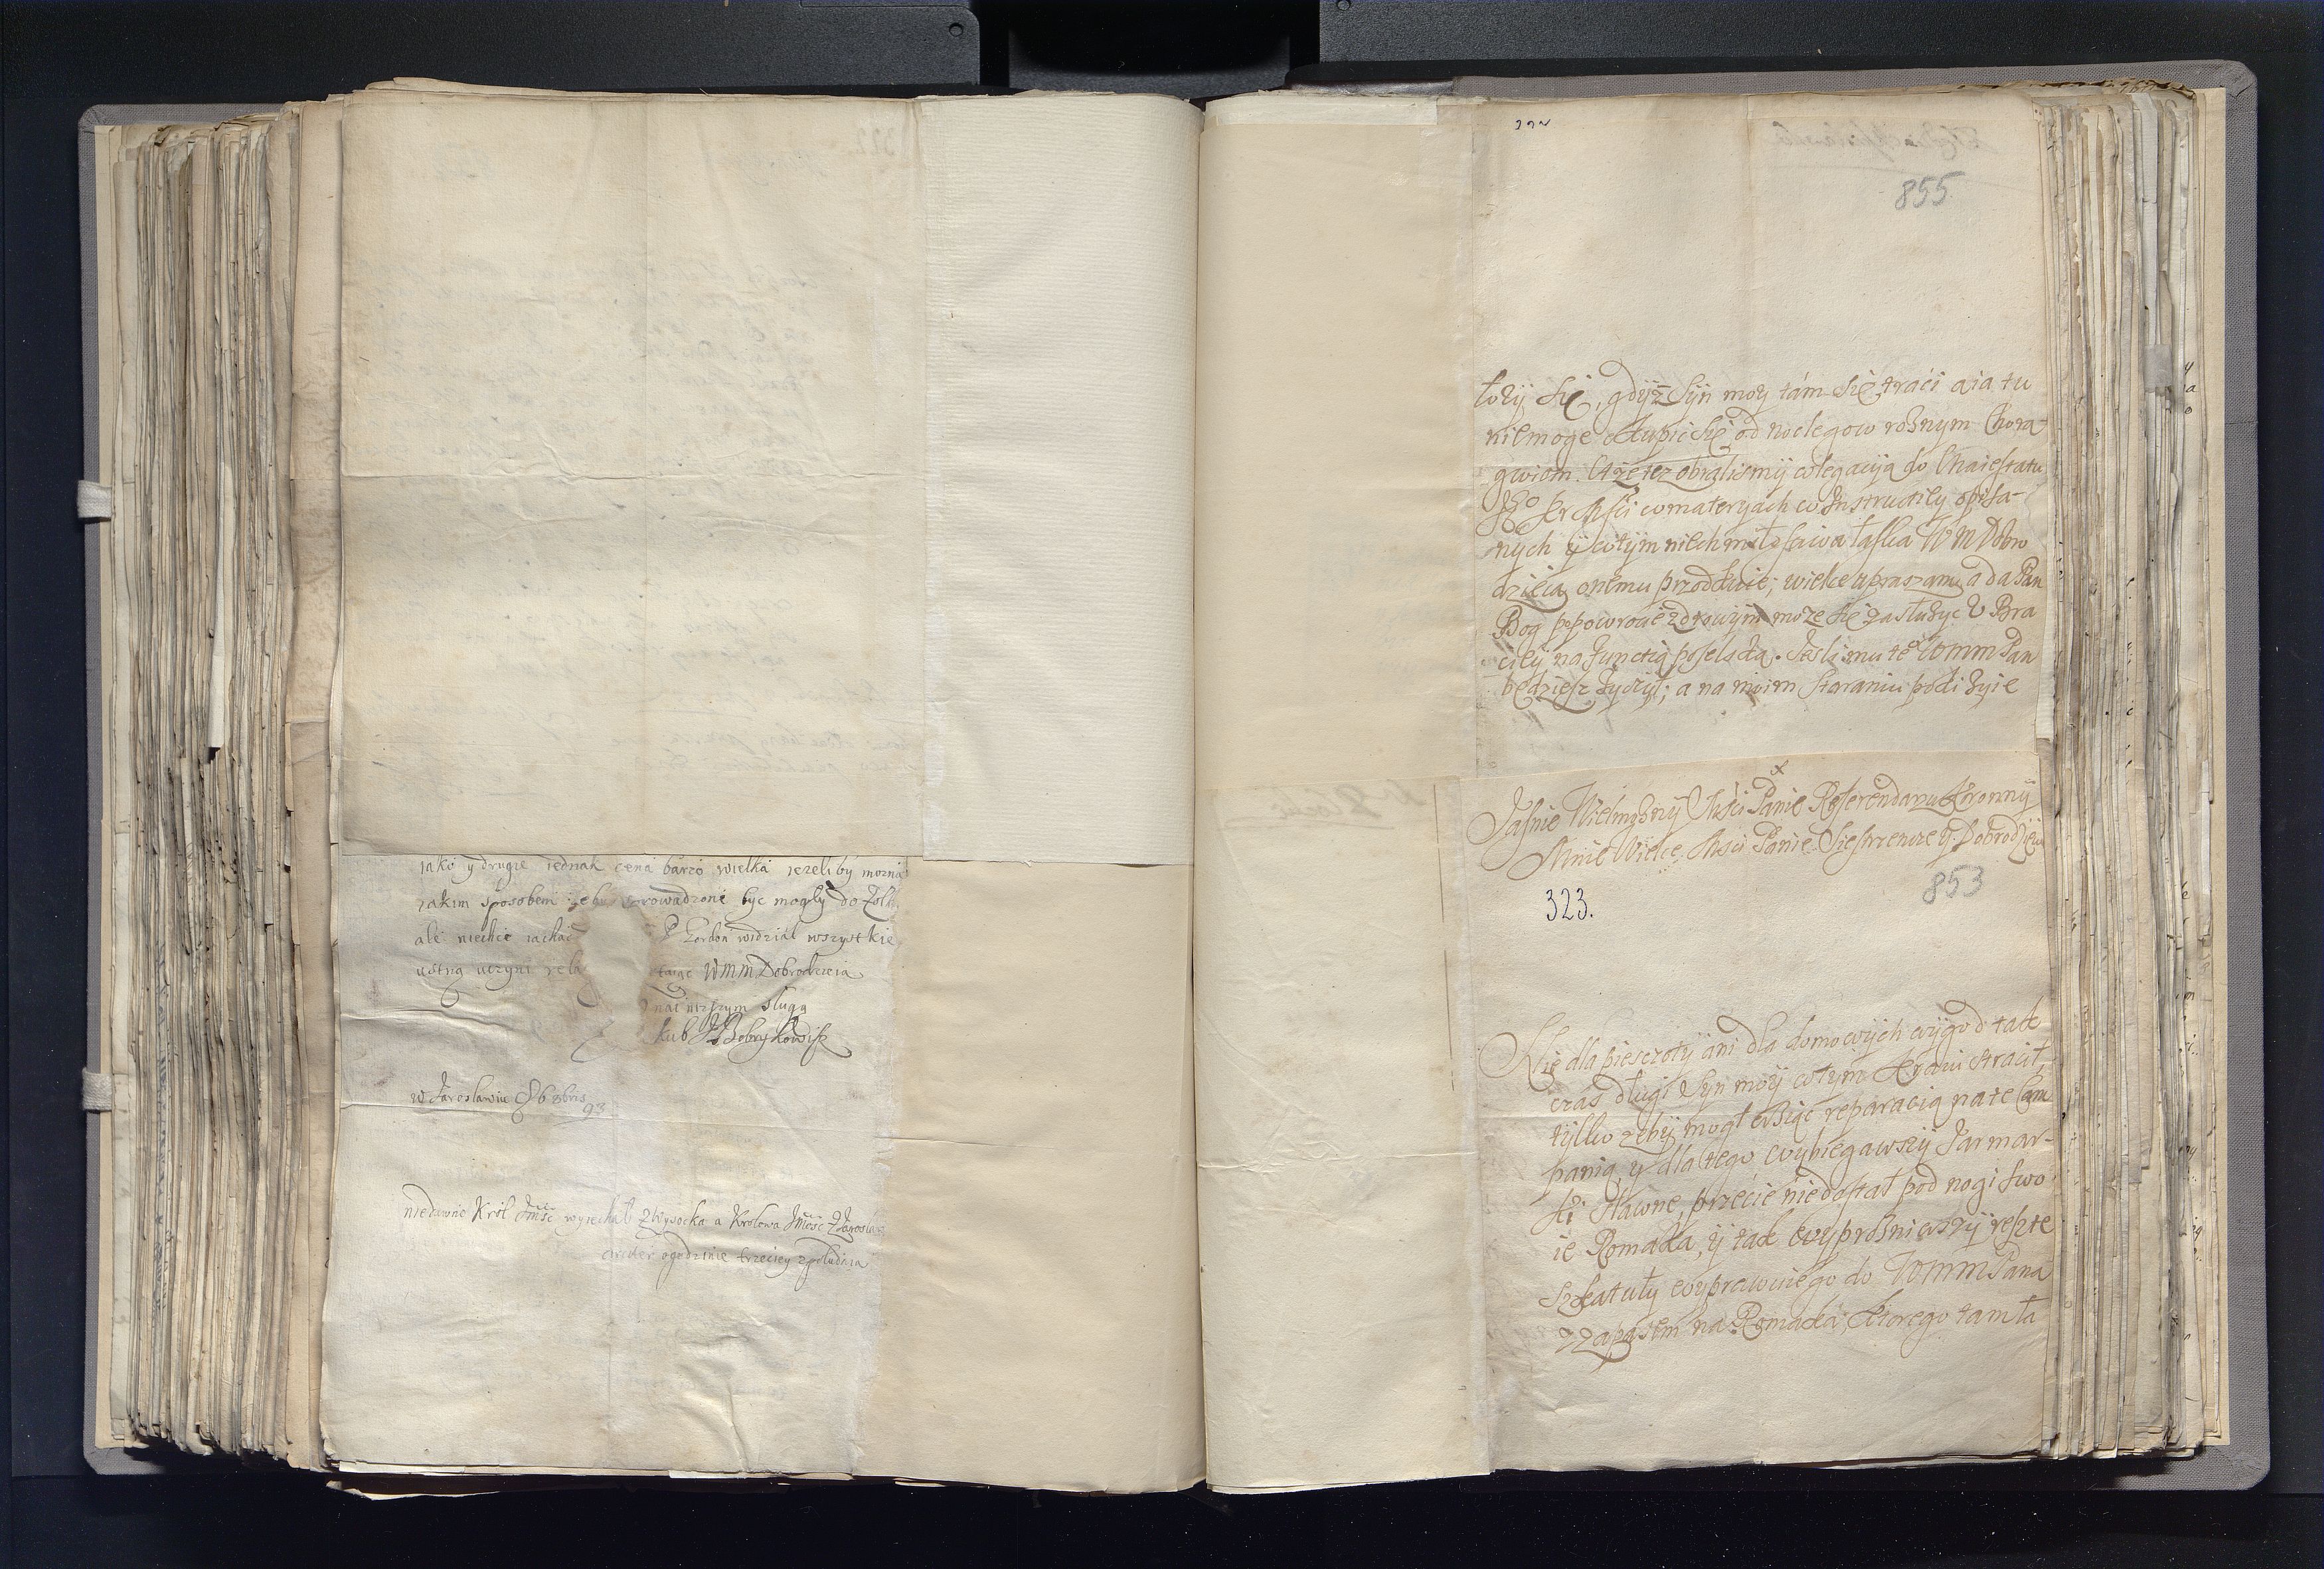 iako y drugie iednak cena barzo wielka iezeli by mozna
iakim sposobem żeby sprowadzone byc mogły do Zolk
ale niechce iachac P Gordon widział wszystkie
ustną uczyni rela WMM Dobrodzieia
nainizszym sługą
kub
w Jarosławiu 8bris
93
niedawno Krol Jmśc wyiechał z Wysocka a Krolowa Jmośc z Jarosławia
ogodzinie trzeciey z południa
322
855
łozy się, gdyż Syn moy tám się traći a ia tu
niemoge okupić się od noclegow roznym Chorą
gwiom. A że tez obralismy do Maiestatu
Kro Kr Mści w materyach w Instructiey opisa-
nych y w tym niech miłosciwa łaska WM Dobro
dzieia onemu przodkuie; wielce upraszam, a da Pan
Bog po powrocie zdrowym może się zasłużyc U Bra
ciey na functią poselską. Jesli mu te WMM Pan
będziesz życzył; a na moim staraniu poki żyie
Jasnie Wielmożny Mści Panie Referendarzu Koronny
Mnie Wielce Mści Panie Siestrzencze y Dobrodzieiu
323.
853
Nie dla piesczoty áni dla domowych wygod tak
czas długi Syn moy w tym kraiu stracił,
tylko żeby mogł wziąc reparacią na te Cam
panią, y dla tego wybiegawszy Jarmar-
ki sławne, przecie nie dostał pod nogi swo
ie Romaka, y tak wyprożniwszy reszte
Szkatuły wyprawuie go do WMM Pana
z zapasem na Romaka, ktorego tam ła